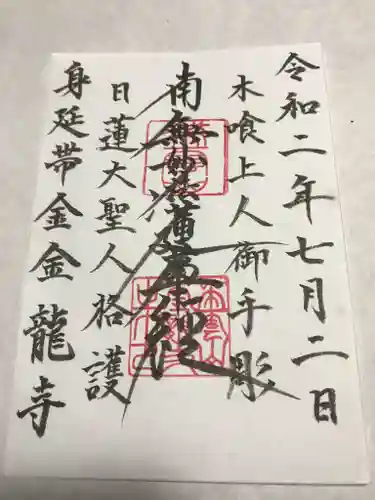 令和二年七月二日
木喰上人御手彫
南無妙法蓮華経
日蓮大聖人格護
身延帯金金龍寺